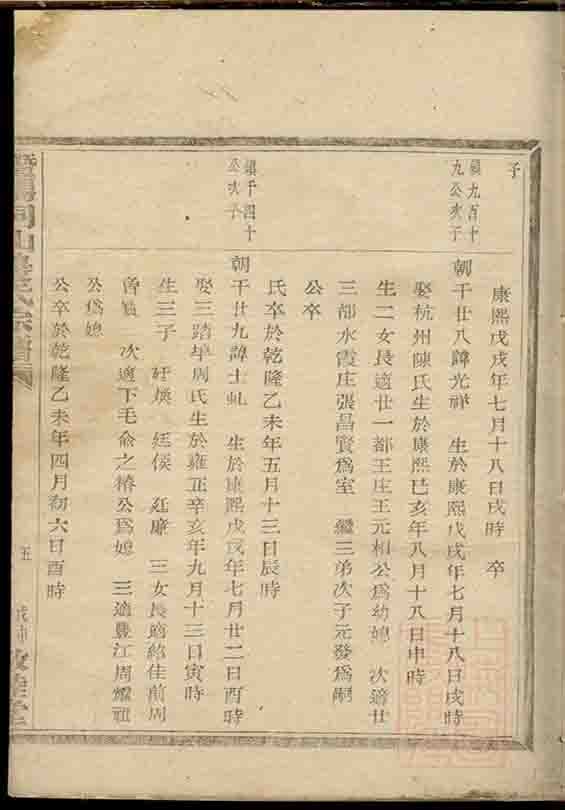 子
康熙戊戌年七月十八日戌時 卒
鎮九百十
九公次子
朝千廿八諱光禅 生於康熙戊戌年七月十八日戌時
娶杭州陳氏生於康熙巳亥年八月十八日申時
生二女長適廿一都王庄王元相公爲幼媳 次適廿
三都水霞庄張昌賢爲室 繼三弟次子元發爲嗣
公卒
氏卒於乾隆乙未年五月十三日辰時
鎮千四十
公次子
朝千廿九諱士虬 生於康熙戊戌年七月廿二日酉時
娶三踏垾周氏生於雍正辛亥年九月十三日寅時
生三子 廷煥 廷侯 廷廉 三女長適紹佳前周
曾 次適下毛兪之椿公爲媳 三適豐江周耀祖
公爲媳
公卒於乾隆乙未年四月初六日酉時
山 氏宗譜
五